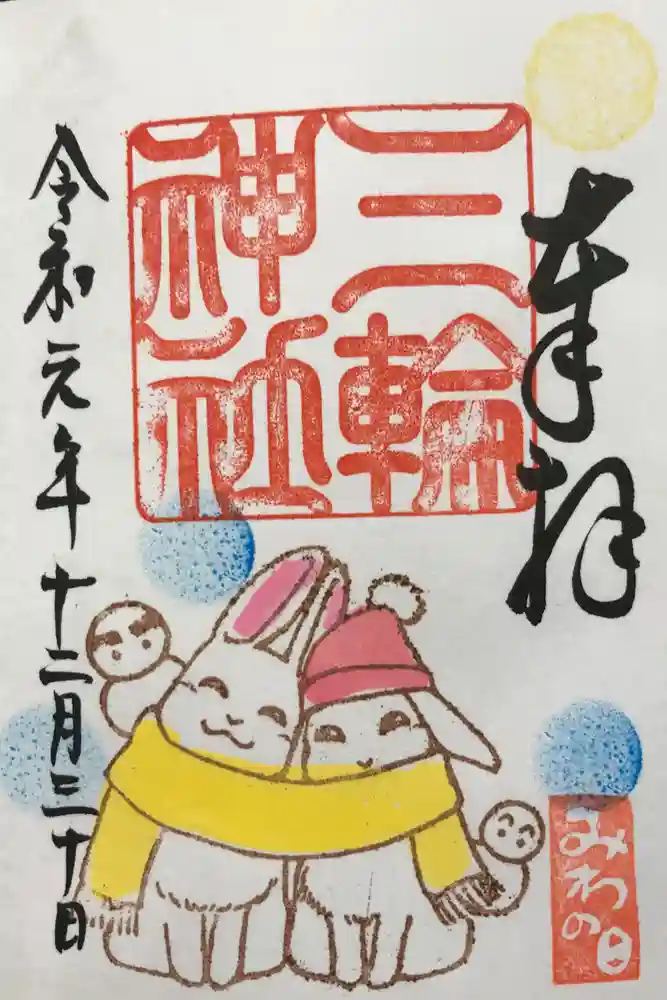 奉拝
三輪
神社
令和元年十二月三十日
みわの日